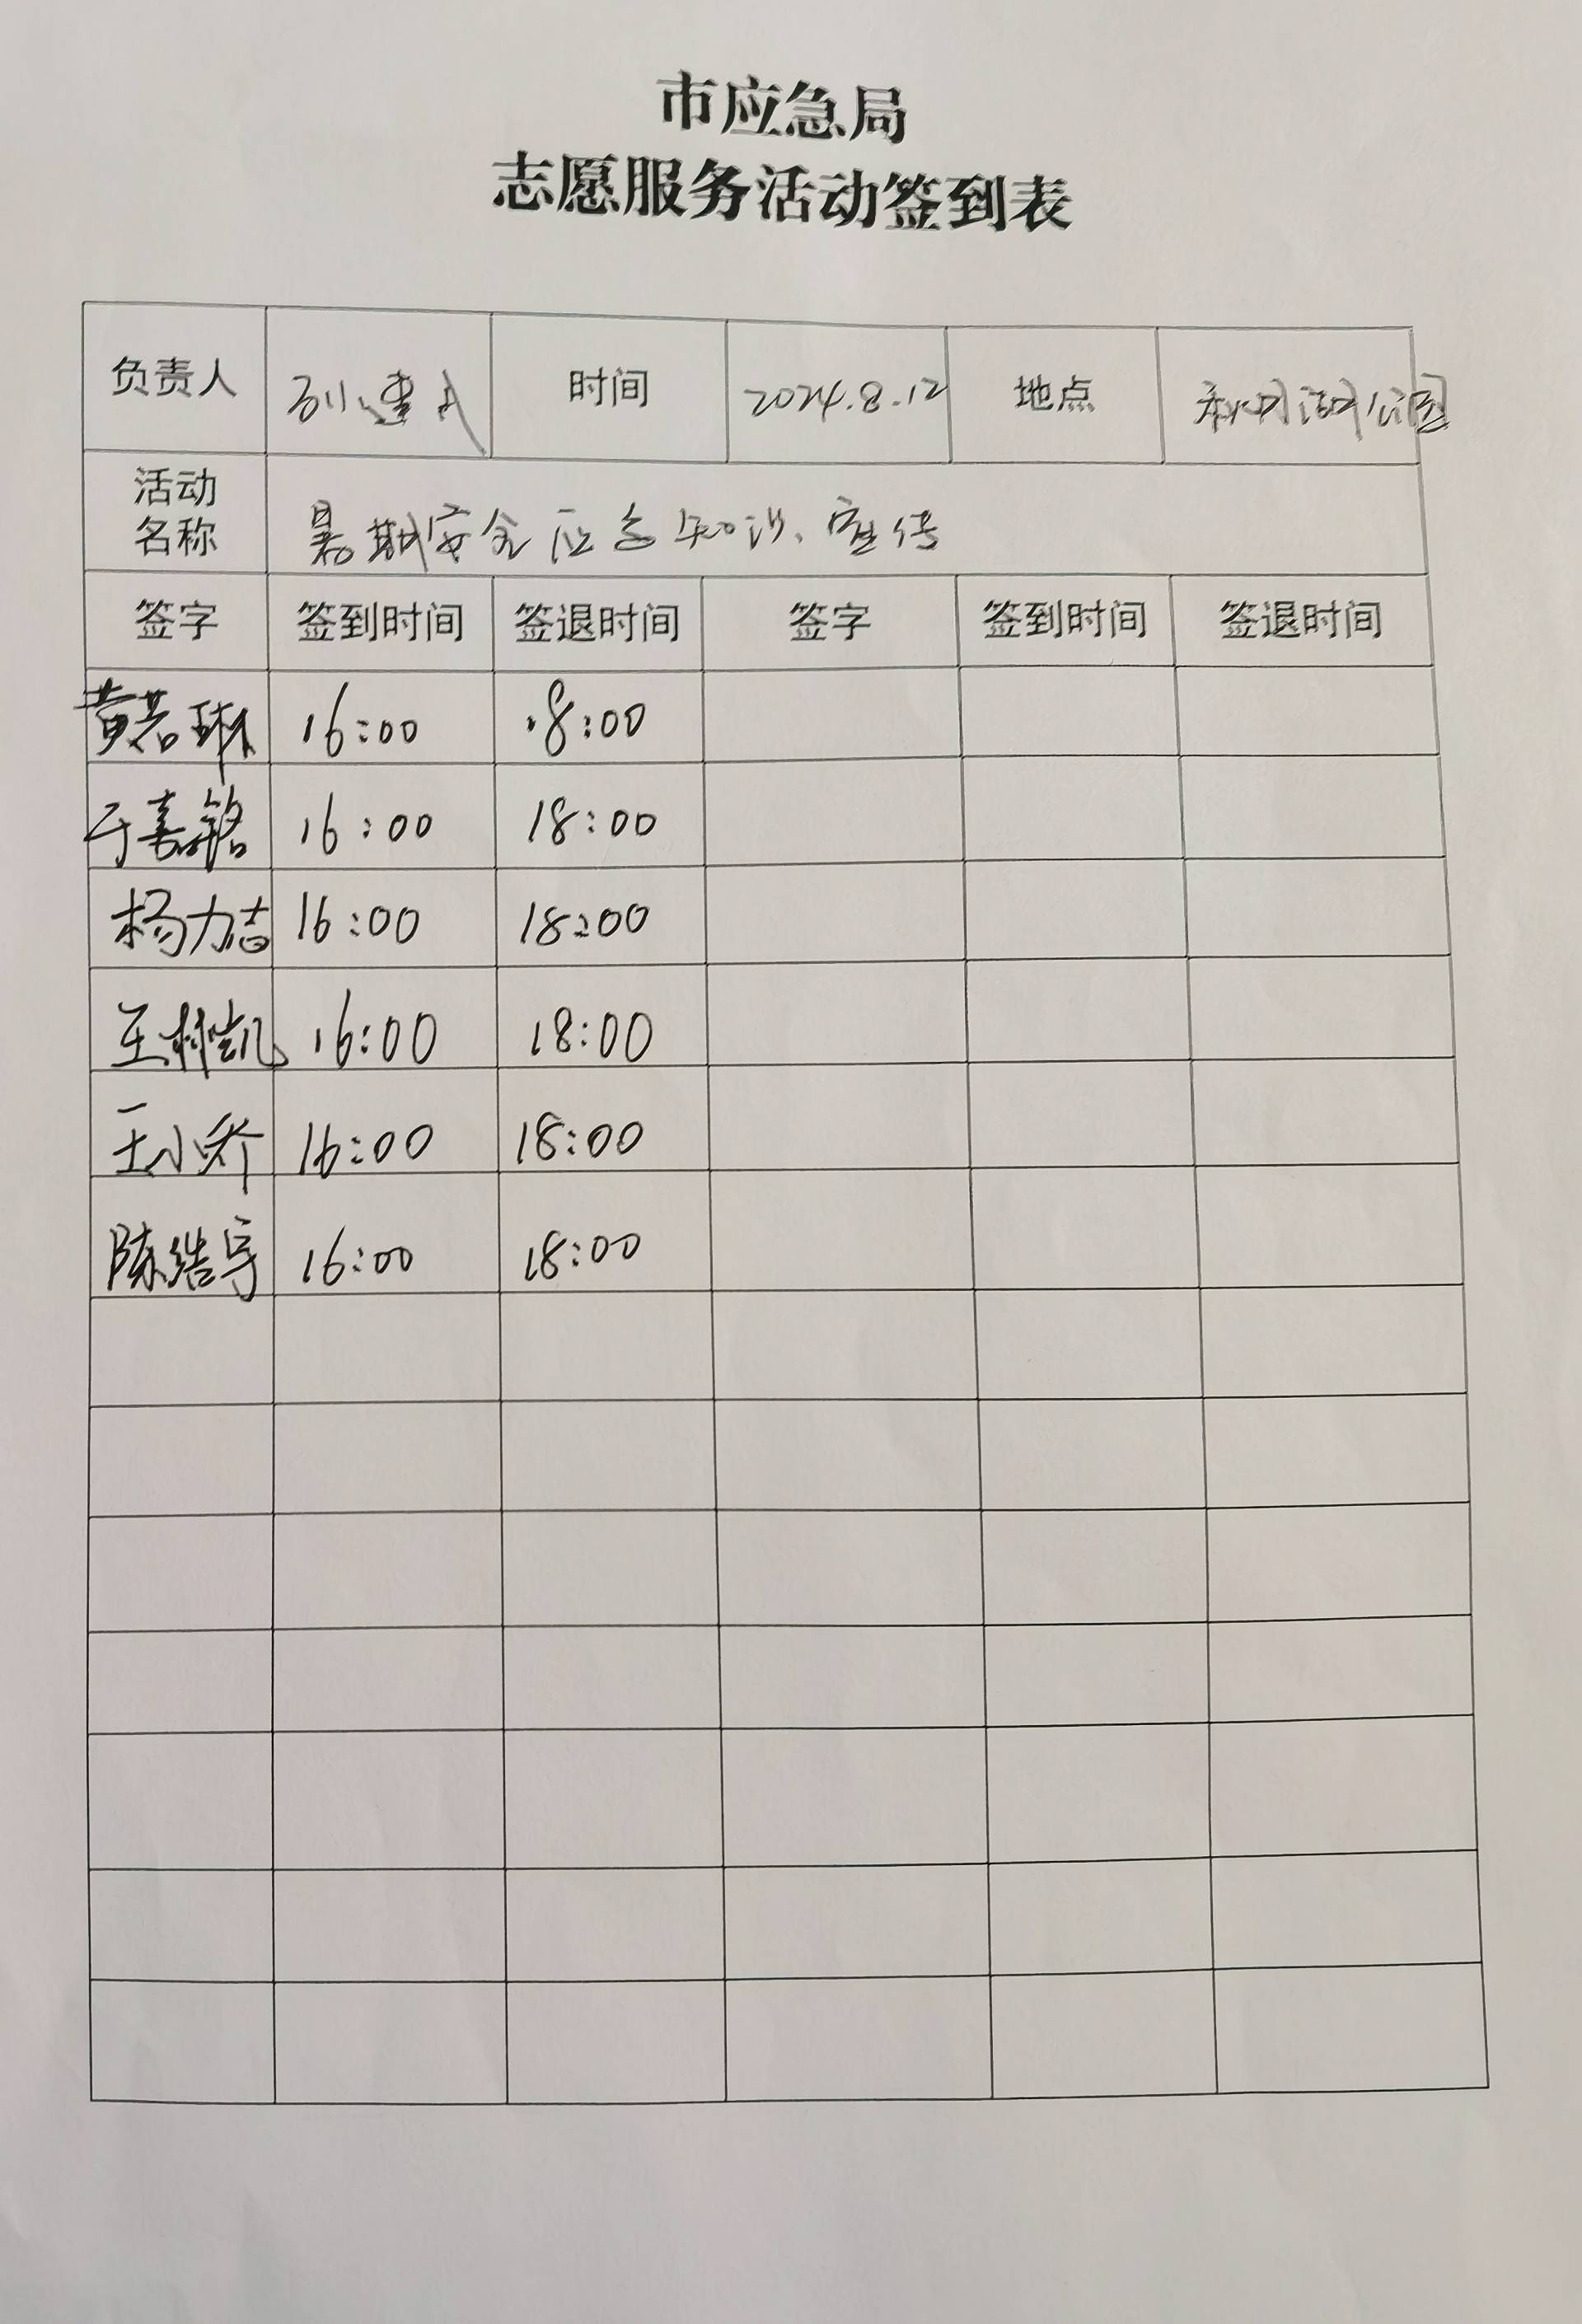 市应急局
志愿服务活动签到表
负责人 时间 2024.8.12 地点 秋月湖公园
活动名称 暑期安全应急知识、宣传
签字 签到时间 签退时间 签字 签到时间 签退时间
黄若琳 16:00 18:00
于嘉铭 16:00 18:00
杨力喆 16:00 18:00
王树凯 16:00 18:00
王小乔 16:00 18:00
陈浩宇 16:00 18:00